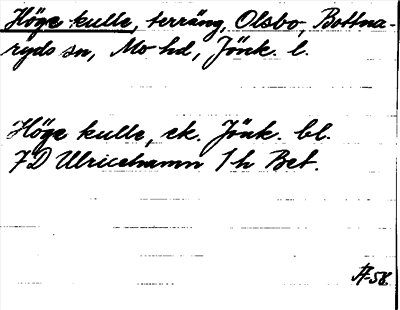 Höge kulle, terräng, Olsbo, Bottna-
ryds sn, Mo hd, Jönk. l.
Höge kulle, ek. Jönk. bl.
7D Ulricehamn 1h Bet.
A-58